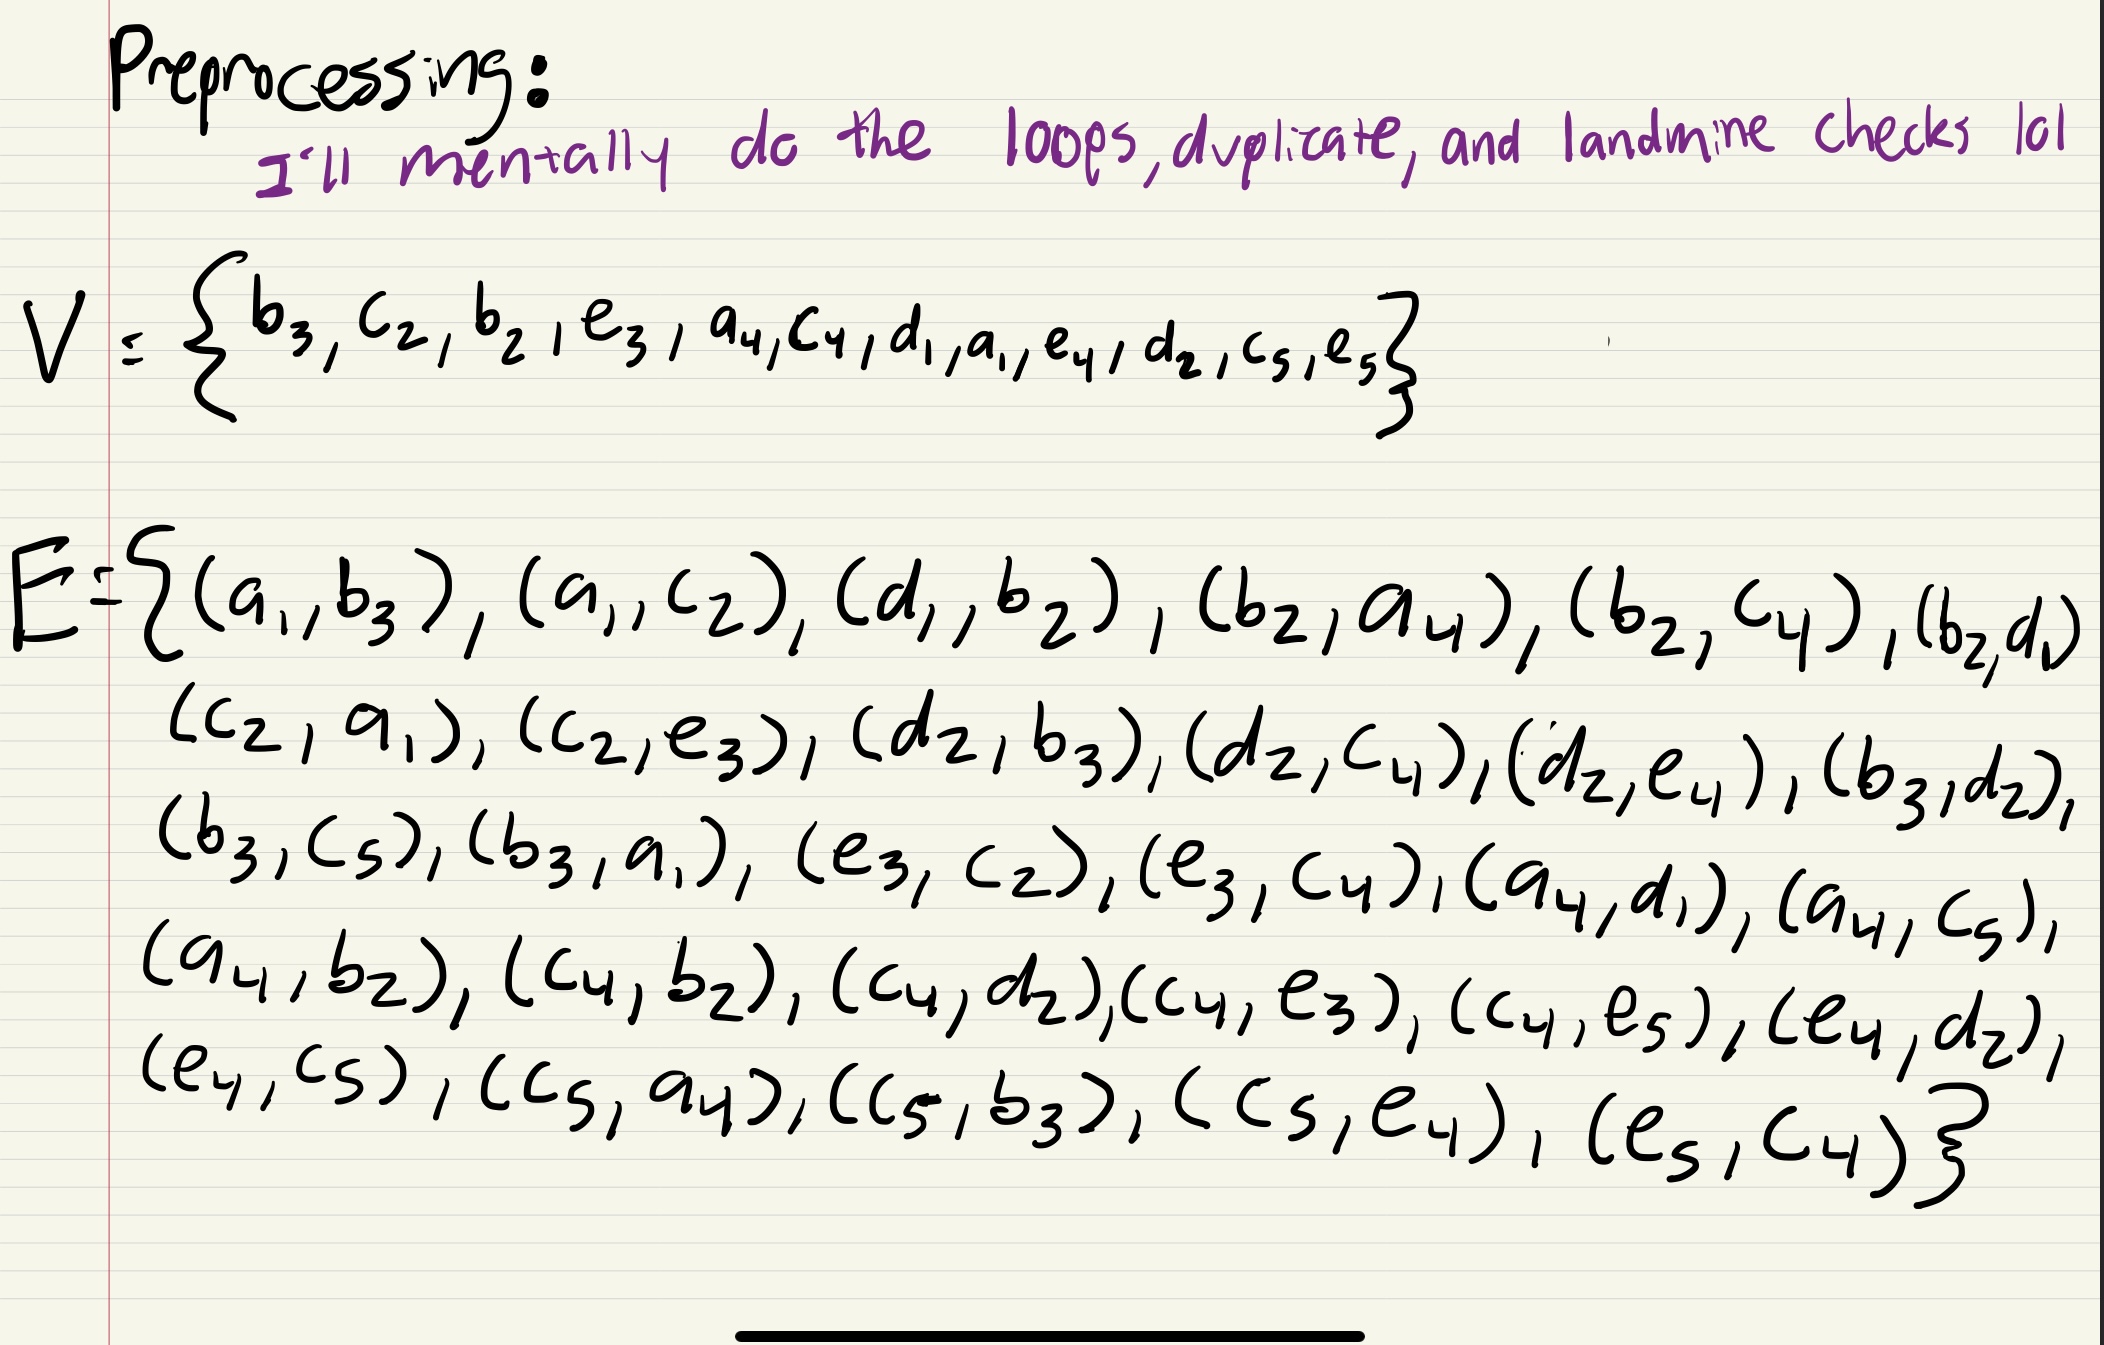 Preprocessing:
I'll mentally do the loops, duplicate, and landmine checks lol
V = {b₃, c₂, b₂, e₃, a₄, c₄, d₁, a₁, e₄, d₂, c₅, e₅}
E={(a₁,b₃), (a₁,c₂), (d₁,b₂), (b₂,a₄), (b₂,c₄), (b₂,d₁)
(c₂,a₁), (c₂,e₃), (d₂,b₃), (d₂,c₄), (d₂,e₄), (b₃,d₂),
(b₃,c₅), (b₃,a₁), (e₃,c₂), (e₃,c₄), (a₄,d₁), (a₄,c₅),
(a₄,b₂), (c₄,b₂), (c₄,d₂), (c₄,e₃), (c₄,e₅), (e₄,d₂),
(e₄,c₅), (c₅,a₄), (c₅,b₃), (c₅,e₄), (e₅,c₄)}